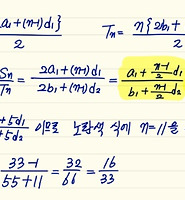 a₁+(n-1)d₁} / 2    Tₙ = n{2b₁+ / 2
Sₙ/Tₙ = 2a₁+(n-1)d₁ / 2b₁+(n-1)d₂ = a₁+(n-1)/2 d₁ / b₁+(n-1)/2 d₂
+5d₁ / +5d₂ 이므로 노란색 식에 n=11을
33-1 / 55+11 = 32/66 = 16/33